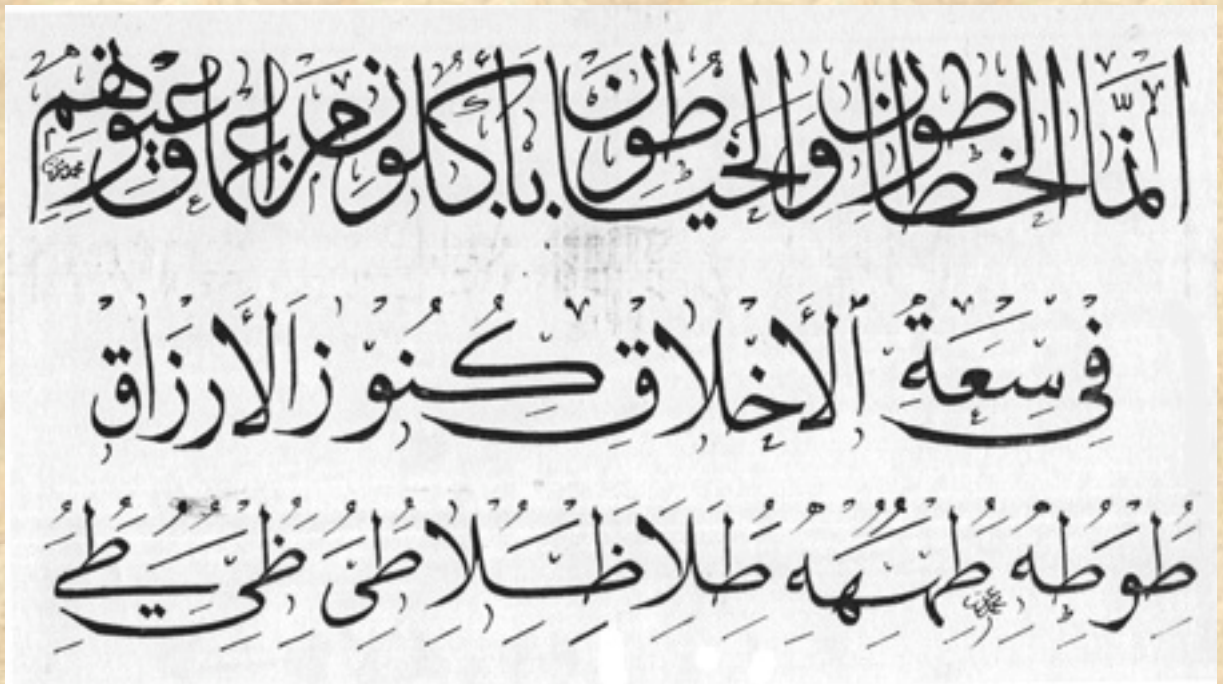 إنّما الخطاطون والخياطون يأكلون من أعماق عيونهم
في سعة الأخلاق كنوز الأرزاق
طو طه طلا ظلا طى ظى